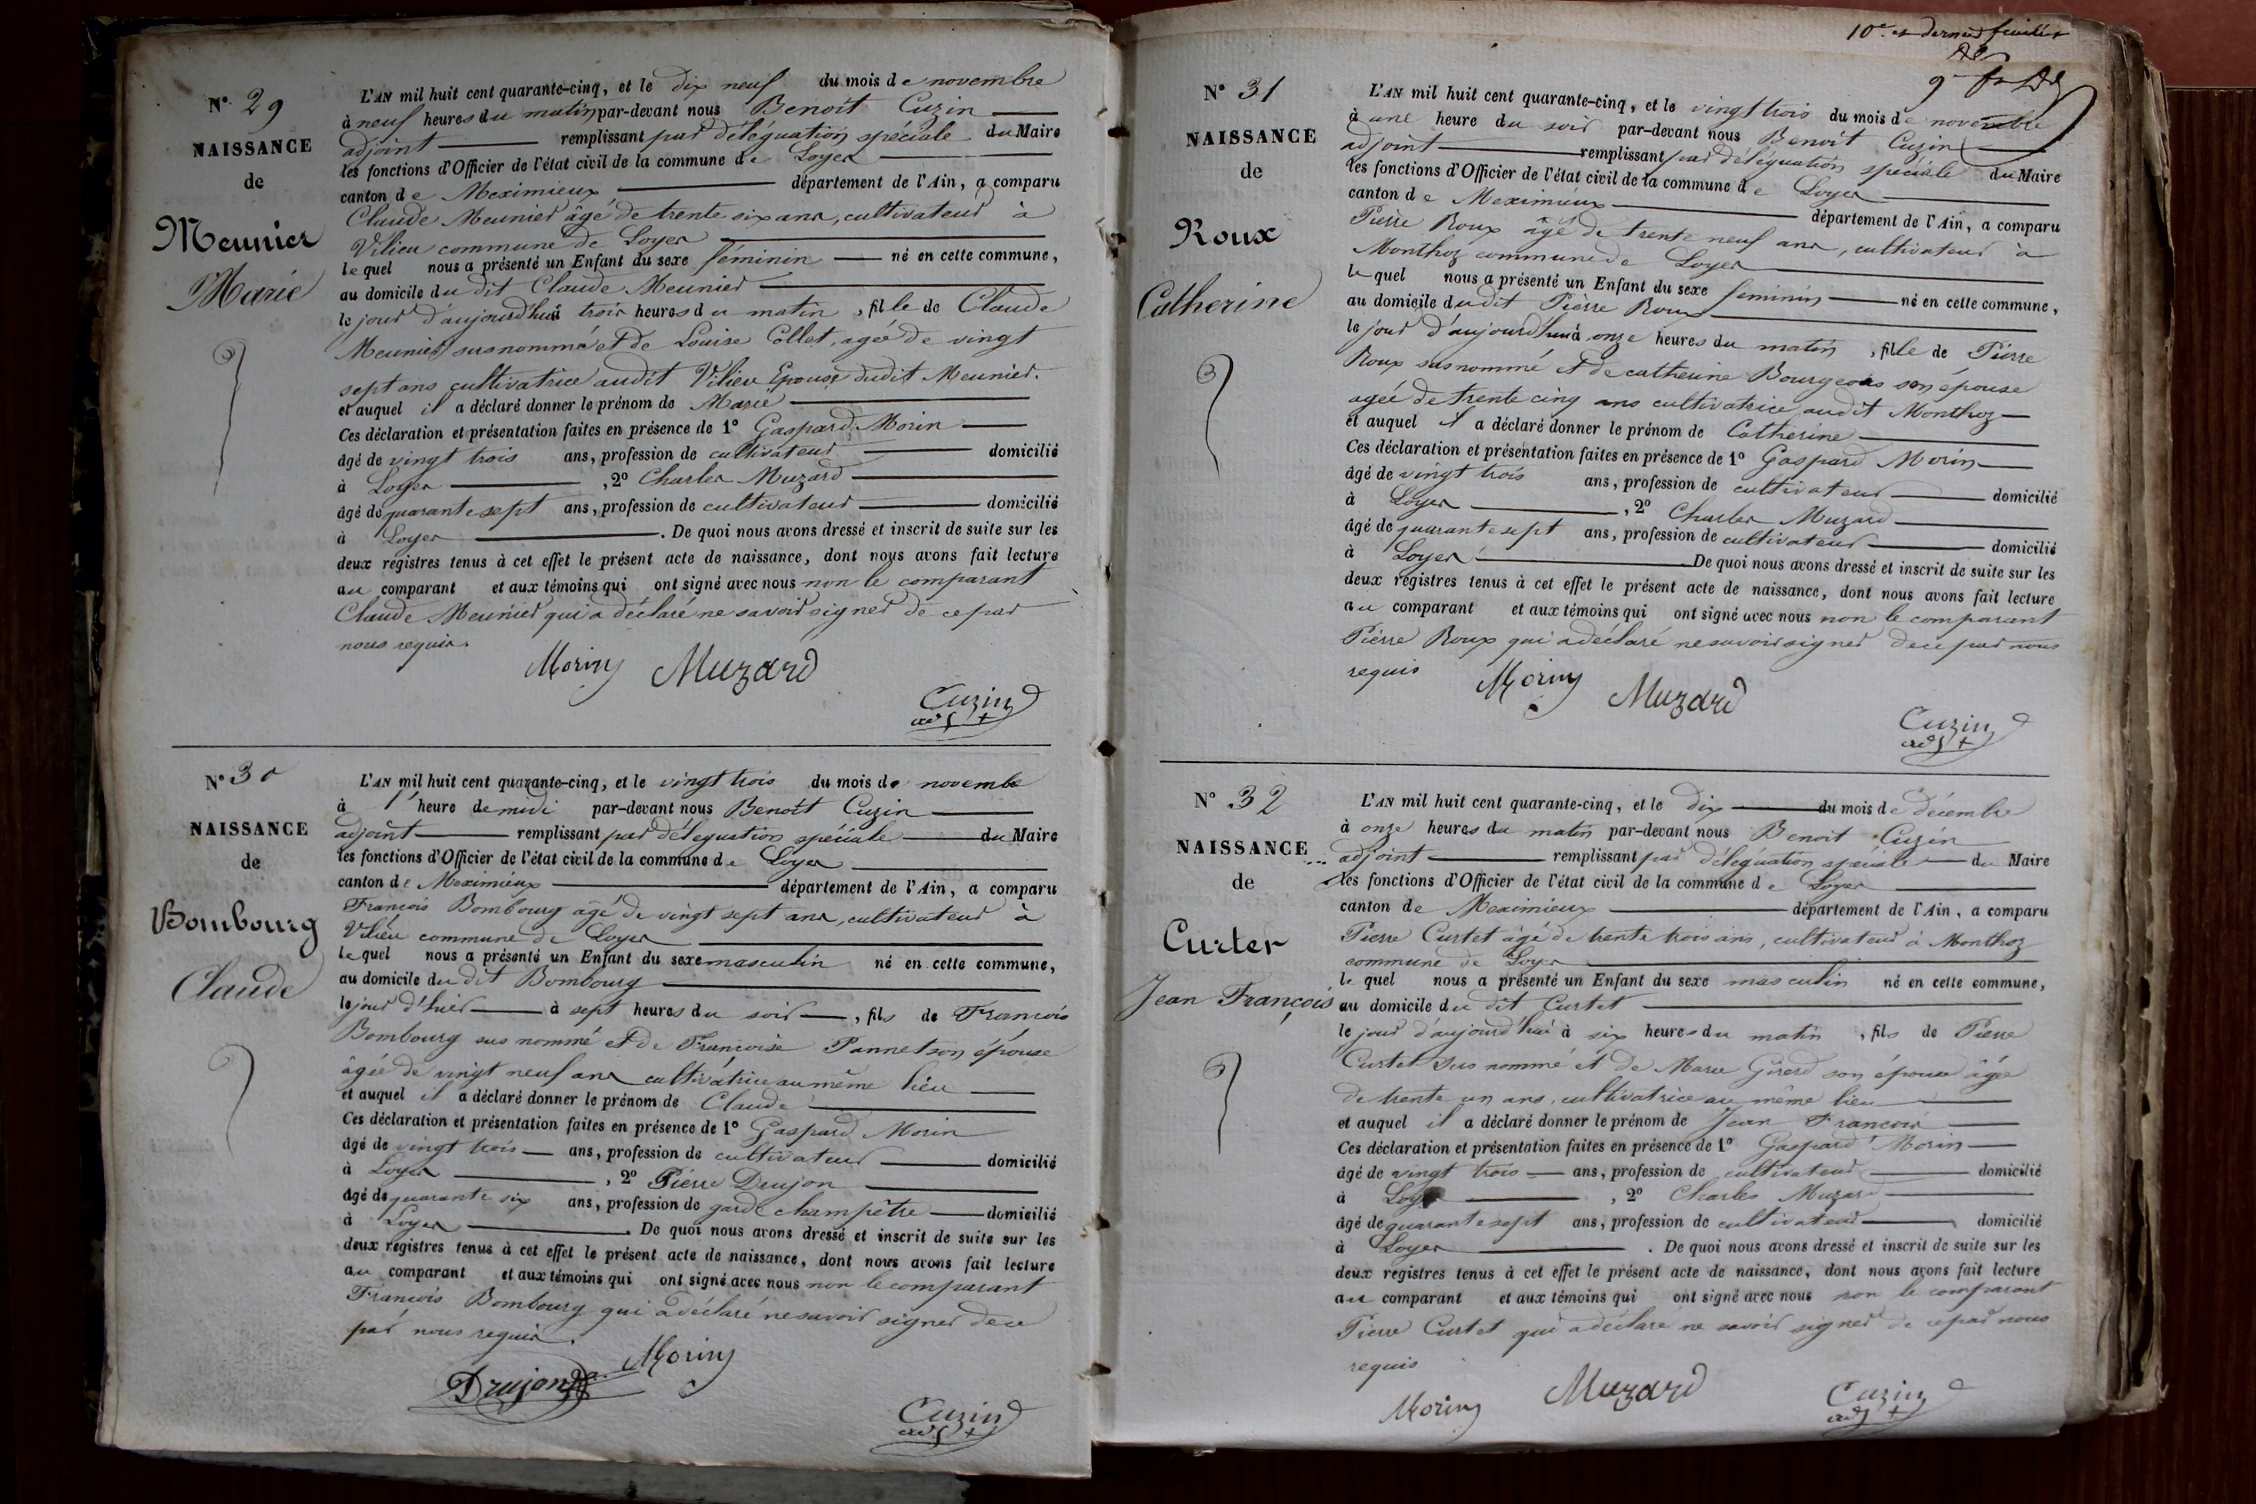 N° 29
NAISSANCE
de
Meunier
Marie
L'AN mil huit cent quarante-cinq, et le dix neuf du mois de novembre
à neuf heures du matin par-devant nous Benoit Cuzin
adjoint remplissant par déleguation spéciale du Maire
les fonctions d'Officier de l'état civil de la commune de Loyer
canton de Meximieux département de l'Ain, a comparu
Claude Meunier âgé de trente six ans, cultivateur à
Vilieu commune de Loyer
lequel nous a présenté un Enfant du sexe féminin né en cette commune,
au domicile du dit Claude Meunier
le jour d'aujourd'hui trois heures du matin, fille de Claude
Meunier susnommé et de Louise Collet, agée de vingt
sept ans cultivatrice audit Vilieu Epouse dudit Meunier.
et auquel il a déclaré donner le prénom de Marie
Ces déclaration et présentation faites en présence de 1° Gaspard Morin
âgé de vingt trois ans, profession de cultivateur domicilié
à Loyer, 2° Charles Muzard
âgé de quarante sept ans, profession de cultivateur domicilié
à Loyer. De quoi nous avons dressé et inscrit de suite sur les
deux registres tenus à cet effet le présent acte de naissance, dont nous avons fait lecture
au comparant et aux témoins qui ont signé avec nous non le comparant
Claude Meunier qui a déclaré ne savoir signer de ce par
nous requis.
Morin Muzard
Cuzin
adjt
N° 30
NAISSANCE
de
Bombourg
Claude
L'AN mil huit cent quarante-cinq, et le vingt trois du mois de novembe
à 1' heure de midi par-devant nous Benoit Cuzin
adjoint remplissant par déleguation spéciale du Maire
les fonctions d'Officier de l'état civil de la commune de Loyer
canton de Meximieux département de l'Ain, a comparu
François Bombourg âgé de vingt sept ans, cultivateur à
Vilieu commune de Loyer
lequel nous a présenté un Enfant du sexe masculin né en cette commune,
au domicile du dit Bombourg
le jour d'hier à sept heures du soir, fils de François
Bombourg sus nommé et de Francoise Pannet son épouse
âgée de vingt neuf ans cultivatrice au même lieu
et auquel il a déclaré donner le prénom de Claude
Ces déclaration et présentation faites en présence de 1° Gaspard Morin
âgé de vingt trois ans, profession de cultivateur domicilié
à Loyer, 2° Pierre Drujon
âgé de quarante six ans, profession de garde champêtre domicilié
à Loyer. De quoi nous avons dressé et inscrit de suite sur les
deux registres tenus à cet effet le présent acte de naissance, dont nous avons fait lecture
au comparant et aux témoins qui ont signé avec nous non le comparant
François Bombourg qui a déclaré ne savoir signer de ce
par nous requis.
Drujon Morin
Cuzin
adjt
10e et dernier feuillet
N° 31
NAISSANCE
de
Roux
Catherine
L'AN mil huit cent quarante-cinq, et le vingt trois du mois de novembre
à une heure du soir par-devant nous Benoit Cuzin
adjoint remplissant par déléguation spéciale du Maire
les fonctions d'Officier de l'état civil de la commune de Loyer
canton de Meximieux département de l'Ain, a comparu
Pierre Roux âgé de trente neuf ans, cultivateur à
Monthoz commune de Loyer
lequel nous a présenté un Enfant du sexe feminin né en cette commune,
au domicile du dit Pierre Roux
le jour d'aujourd'hui à onze heures du matin, fille de Pierre
Roux susnommé et de catherine Bourgeois son épouse
agée de trente cinq ans cultivatrice audit Monthoz
et auquel il a déclaré donner le prénom de Catherine
Ces déclaration et présentation faites en présence de 1° Gaspard Morin
âgé de vingt trois ans, profession de cultivateur domicilié
à Loyer, 2° Charles Muzard
âgé de quarante sept ans, profession de cultivateur domicilié
à Loyer De quoi nous avons dressé et inscrit de suite sur les
deux registres tenus à cet effet le présent acte de naissance, dont nous avons fait lecture
au comparant et aux témoins qui ont signé avec nous non le comparant
Pierre Roux qui a déclaré ne savoir signer de ce par nous
requis
Morin Muzard
Cuzin
adjt
N° 32
NAISSANCE
de
Curtet
Jean François
L'AN mil huit cent quarante-cinq, et le dix du mois de décembre
à onze heures du matin par-devant nous Benoit Cuzin
adjoint remplissant par déléguation spéciale du Maire
les fonctions d'Officier de l'état civil de la commune de Loyer
canton de Meximieux département de l'Ain, a comparu
Pierre Curtet âgé de trente trois ans, cultivateur à Monthoz
commune de Loyer
lequel nous a présenté un Enfant du sexe masculin né en cette commune,
au domicile du dit Curtet
le jour d'aujourd'hui à six heures du matin, fils de Pierre
Curtet sus nommé et de Marie Girerd son épouse âgée
de trente un ans, cultivatrice au même lieu
et auquel il a déclaré donner le prénom de Jean François
Ces déclaration et présentation faites en présence de 1° Gaspard Morin
âgé de vingt trois ans, profession de cultivateur domicilié
à Loyer, 2° Charles Muzard
âgé de quarante sept ans, profession de cultivateur domicilié
à Loyer. De quoi nous avons dressé et inscrit de suite sur les
deux registres tenus à cet effet le présent acte de naissance, dont nous avons fait lecture
au comparant et aux témoins qui ont signé avec nous non le comparant
Pierre Curtet qui a déclaré ne savoir signer de ce par nous
requis
Morin Muzard Cuzin
adjt